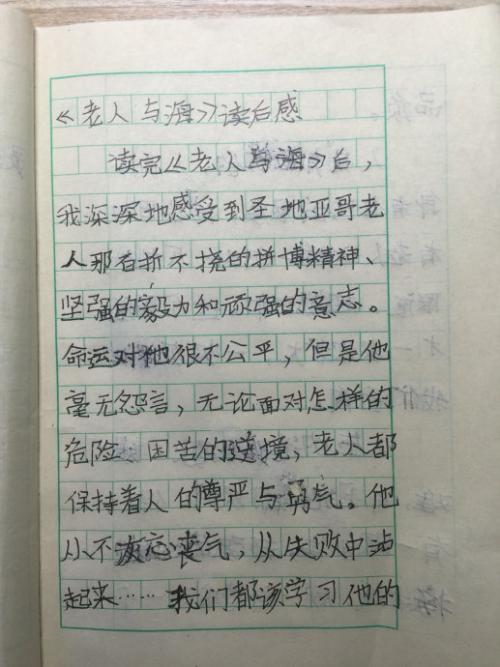 《老人与海》读后感
读完《老人与海》后，
我深深地感受到圣地亚哥老
人那百折不挠的拼博精神、
坚强的毅力和顽强的意志。
命运对他很不公平，但是他
毫无怨言，无论面对怎样的
危险、困苦的逆境，老人都
保持着人的尊严与勇气。他
从不灰心丧气，从失败中站
起来……我们都该学习他的